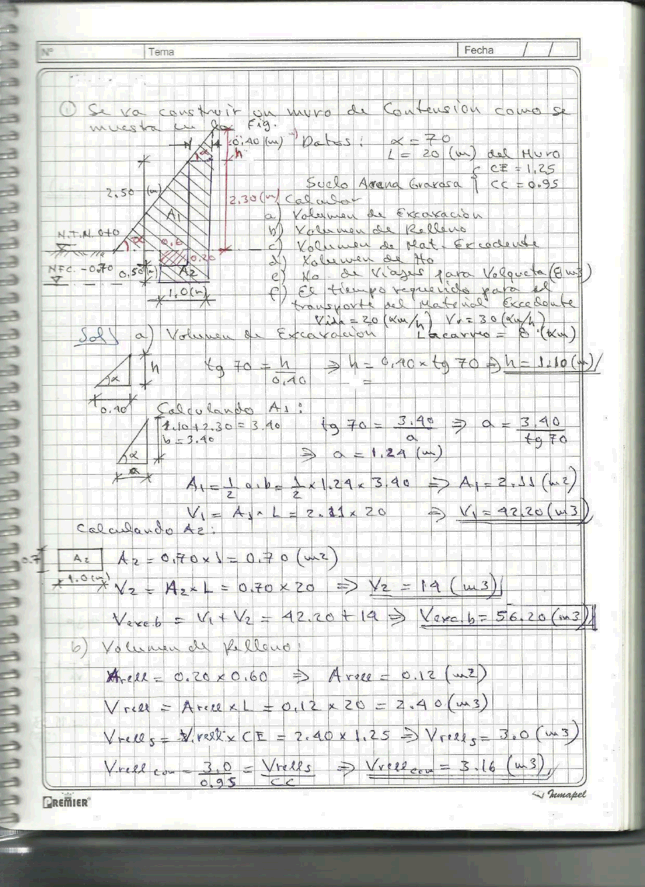 N° Tema Fecha / /
① Se va construir un muro de Contensión como se
muestra en la Fig.
0.40 (m) Datos: α = 70
h L = 20 (m) del Muro
CE = 1.25
Suelo Arena Gravosa CC = 0.95
2,50 (m) 2.30 (m) Calcular
A1 a) Volumen de Excavación
N.T.N. 0+0 α 0.6 b) Volumen de Relleno
0.20 c) Volumen de Mat. Excedente
NFC. -0,70 0.50 (m) A2 d) Volumen de Ho
1.0 (m) e) No de Viajes para Volqueta (8 m3)
f) El tiempo requerido para el
transporte del Material Excedente
Vida = 20 (Km/h) Vr = 30 (Km/h)
Sol/ a) Volumen de Excavación Lacarreo = 8 (Km)
α h tg 70 = h/0.40 ⇒ h = 0,40 × tg 70 ⇒ h = 1.10 (m)
0.40
Calculando A1:
1.10 + 2.30 = 3.40 tg 70 = 3.40/a ⇒ a = 3.40/tg 70
b = 3.40
α a ⇒ a = 1.24 (m)
A1 = 1/2 a.b = 1/2 × 1.24 × 3.40 ⇒ A1 = 2.11 (m2)
V1 = A1 × L = 2.11 × 20 ⇒ V1 = 42.20 (m3)
Calculando A2:
0.7 A2 A2 = 0,70 × 1 = 0.70 (m2)
1.0 (m) V2 = A2 × L = 0.70 × 20 ⇒ V2 = 14 (m3)
Vexc.b = V1 + V2 = 42.20 + 14 ⇒ Vexc.b = 56.20 (m3)
b) Volumen de Relleno:
Arell = 0.20 × 0.60 ⇒ Arell = 0.12 (m2)
Vrell = Arell × L = 0.12 × 20 = 2.40 (m3)
Vrells = Vrell × CE = 2.40 × 1.25 ⇒ Vrells = 3.0 (m3)
Vrell com = 3.0/0.95 = Vrells/CC ⇒ Vrell com = 3.16 (m3)
PREMIER Inmapel